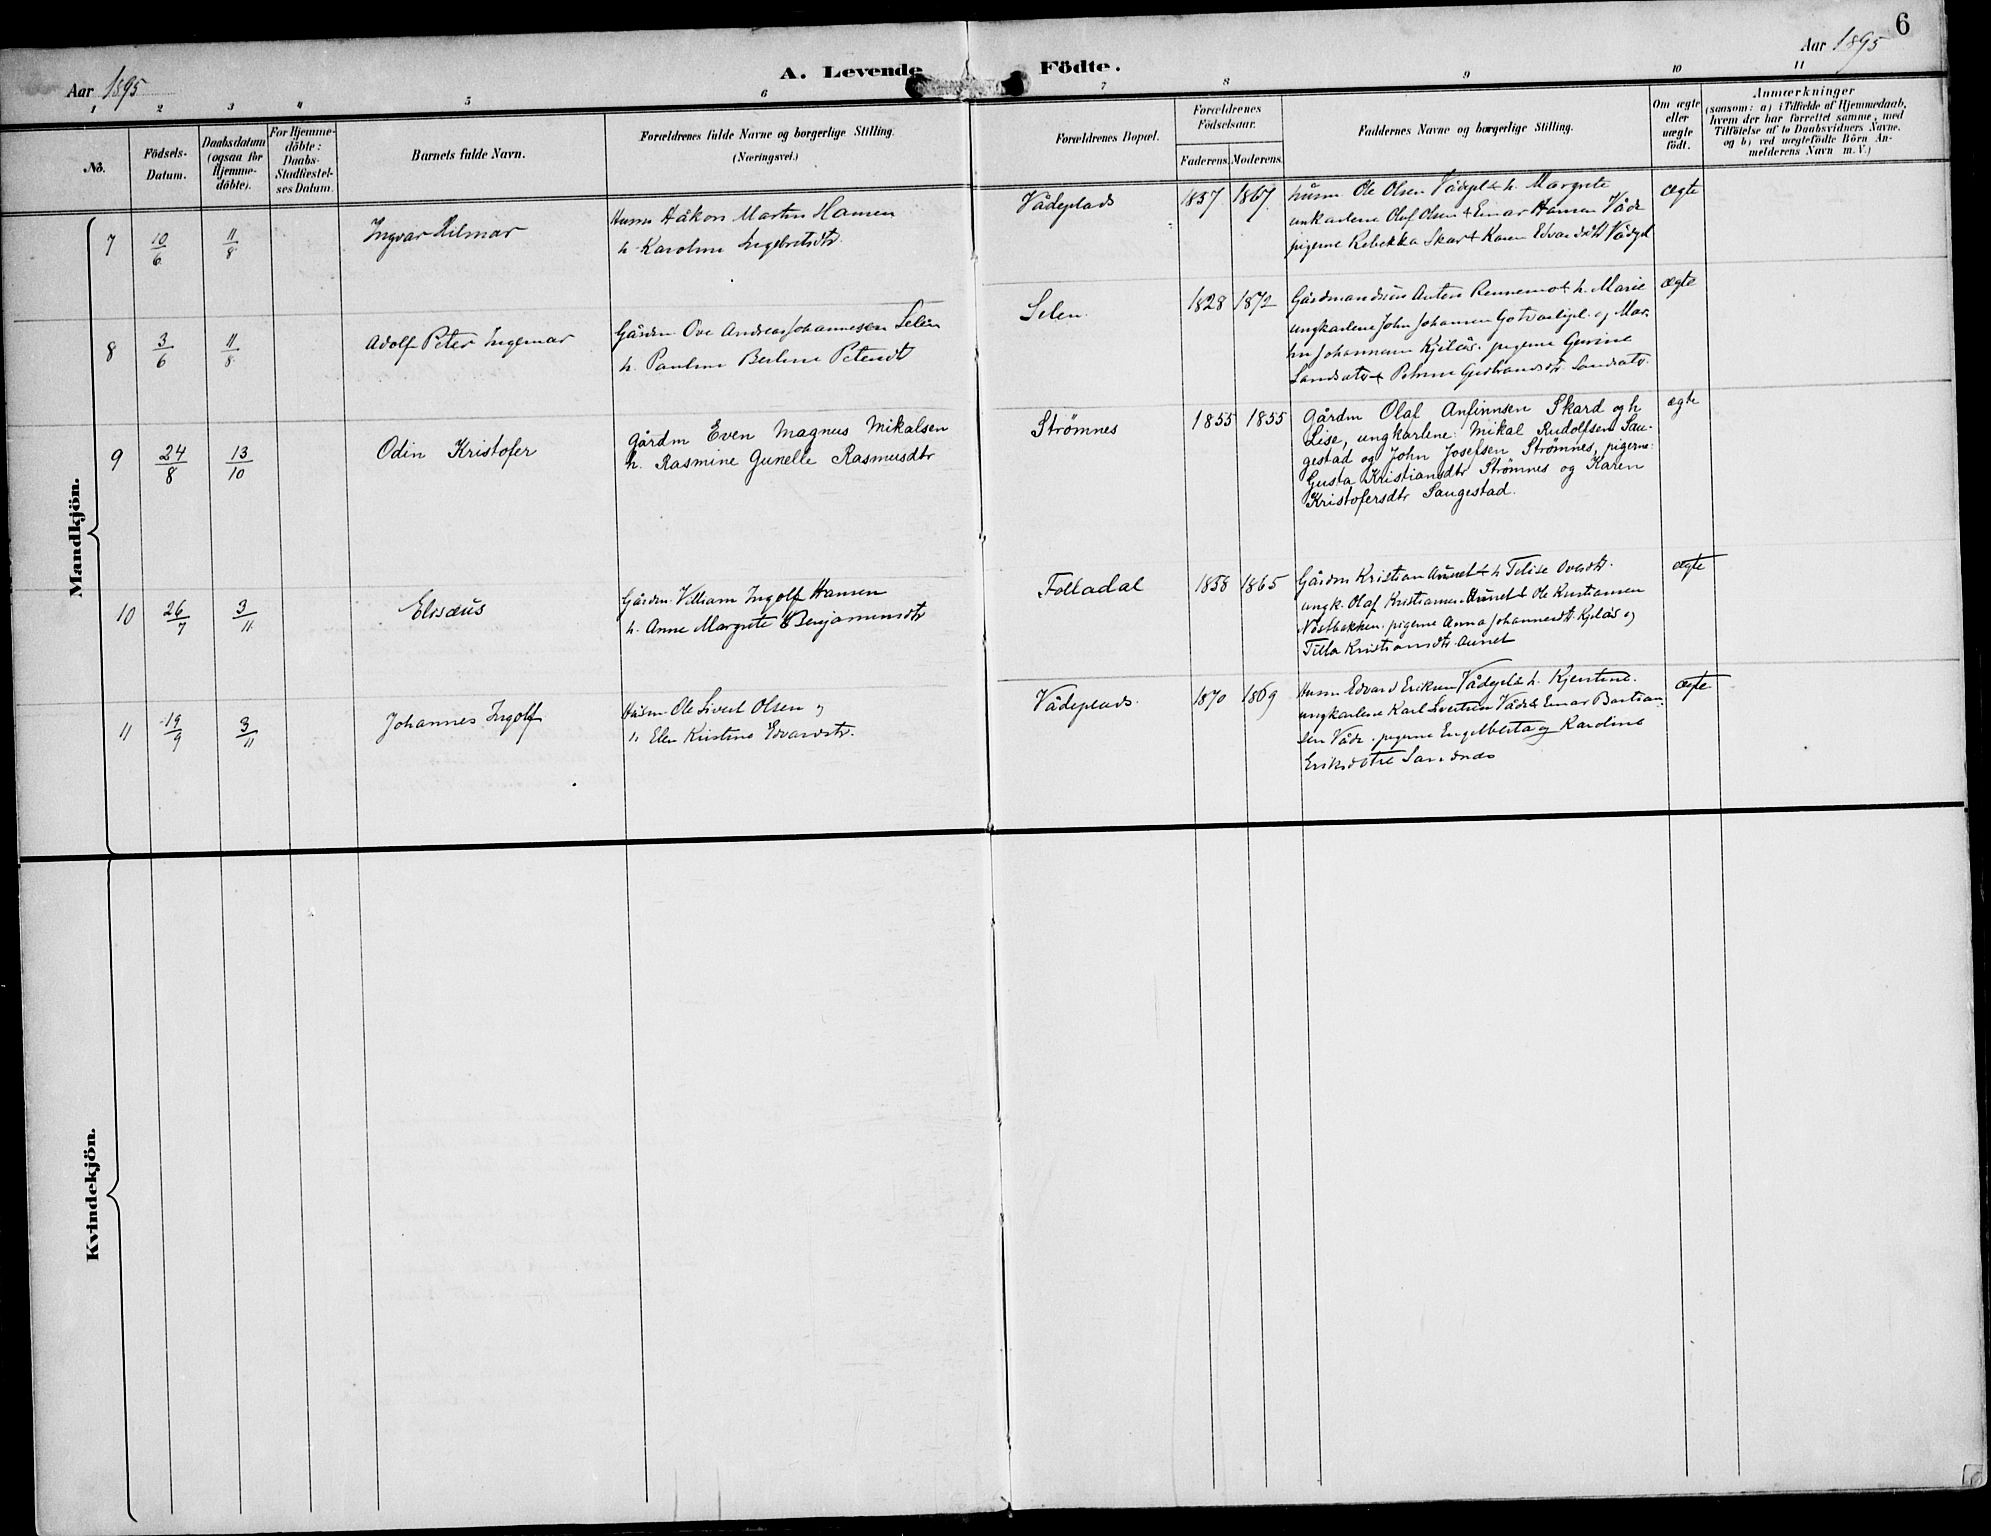 6
Aar 1895
A. Levende Födte.
Aar 1895
1 2 3 4 5 6 7 8 9 10 11
No.
Födsels-Datum.
Daabsdatum (ogsaa for Hjemme-döbte).
For Hjemme-döbte: Daabs-Stadfæstel-ses Datum.
Barnets fulde Navn.
Forældrenes fulde Navne og borgerlige Stilling.
(Næringsvei.)
Forældrenes Bopæl.
Forældrenes Födselsaar.
Faderens. Moderens.
Faddernes Navne og borgerlige Stilling.
Om ægte eller uægte födt.
Anmærkninger
(saasom: a) i Tilfælde af Hjemmedaab,
hvem der har forrettet samme, med
Tilföielse af to Daabsvidners Navne.
og b) ved uægtefödte Börn An-
melderens Navn m. V.)
Mandkjön.
7 10/6 11/8 Ingvar Hilmar
Husm Håkon Martin Hansen
h. Karoline Ingebretsdtr.
Vådeplads 1857 1867
husm Ole Olsen Vådepl & h. Margrete
unkarlene Oluf Olsen & Einar Hansen Våde
pigerne Rebekka Skar & Karen Edvardsdtr Vådepl
ægte
8 3/6 11/8 Adolf Peter Ingemar
Gårdm Ove Andreas Johannesen Selen
h. Pauline Berline Petersdt
Selen 1828 1872
Gårdmandssøn Anton Rennemo & h. Marie
ungkarlene John Johansen Gotvasligpl. og Mar-
tin Johannesen Kjelås. pigerne Gurine
Landsætr & Petrine Gustavsdtr Landsætr.
ægte
9 24/8 13/10 Odin Kristofer
Gårdm Even Magnus Mikalsen
h. Rasmine Gunelle Rasmusdtr
Strømnes 1855 1855
Gårdm Olaf Anfinnsen Skard og h
Lise, ungkarlene: Mikal Rudolfsen Sau-
gestad og John Josefsen Strømnes, pigerne:
Gusta Kristiansdtr Strømnes og Karen
Kristofersdtr Saugestad.
ægte
10 26/7 3/11 Elisæus
Gårdm. Villiam Ingolf Hansen
h. Anne Margrete Benjaminsdtr
Folladal 1858 1865
Gårdm Kristian Aunet & h Telise Ovesdtr.
ungk. Olaf Kristiansen Aunet & Ole Kristiansen
Nøstbakken. pigerne Anna Johannesdt. Kjelås og
Tilla Kristiansdtr. Aunet
ægte
11 19/9 3/11 Johannes Ingolf
Husm Ole Sivert Olsen og
h Elen Kristine Edvardsdtr.
Vådeplads 1870 1869
Husm Edvard Eriksen Vådepl & h. Kjerstine.
ungkarlene Karl Sivertsen Våde & Einar Bastian-
sen Våde. pigerne Engelberta og Karoline
Eriksdøtre
ægte
Kvindekjön.